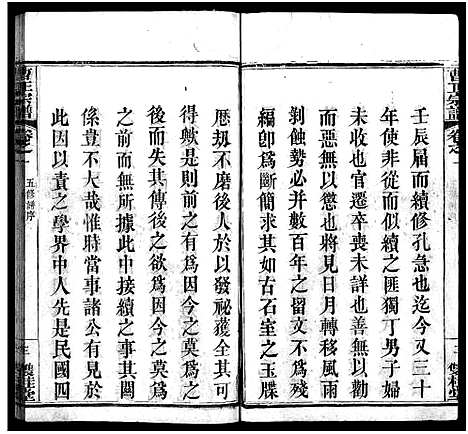 壬辰屆而續修孔急也迄今又三十
年使非從而似續之匪獨丁男子婦
之或官或遷卒喪未詳善無以勸
而惡無以懲也將見日月轉移風雨
剝蝕幷數百年之留文不
編卽爲斷簡求其如古石室之玉牒
曹氏宗譜
卷之一
五修譜序
雙桂堂
歷刼不磨後人於以發祕獲全其可
得歟是則有爲因今之莫爲
而失傳其傳後之欲爲因今之莫爲
之前而無所據此中接續之事其關
係豈不大哉惟時當事諸公有見於
此因以責之學界中人先是民國四